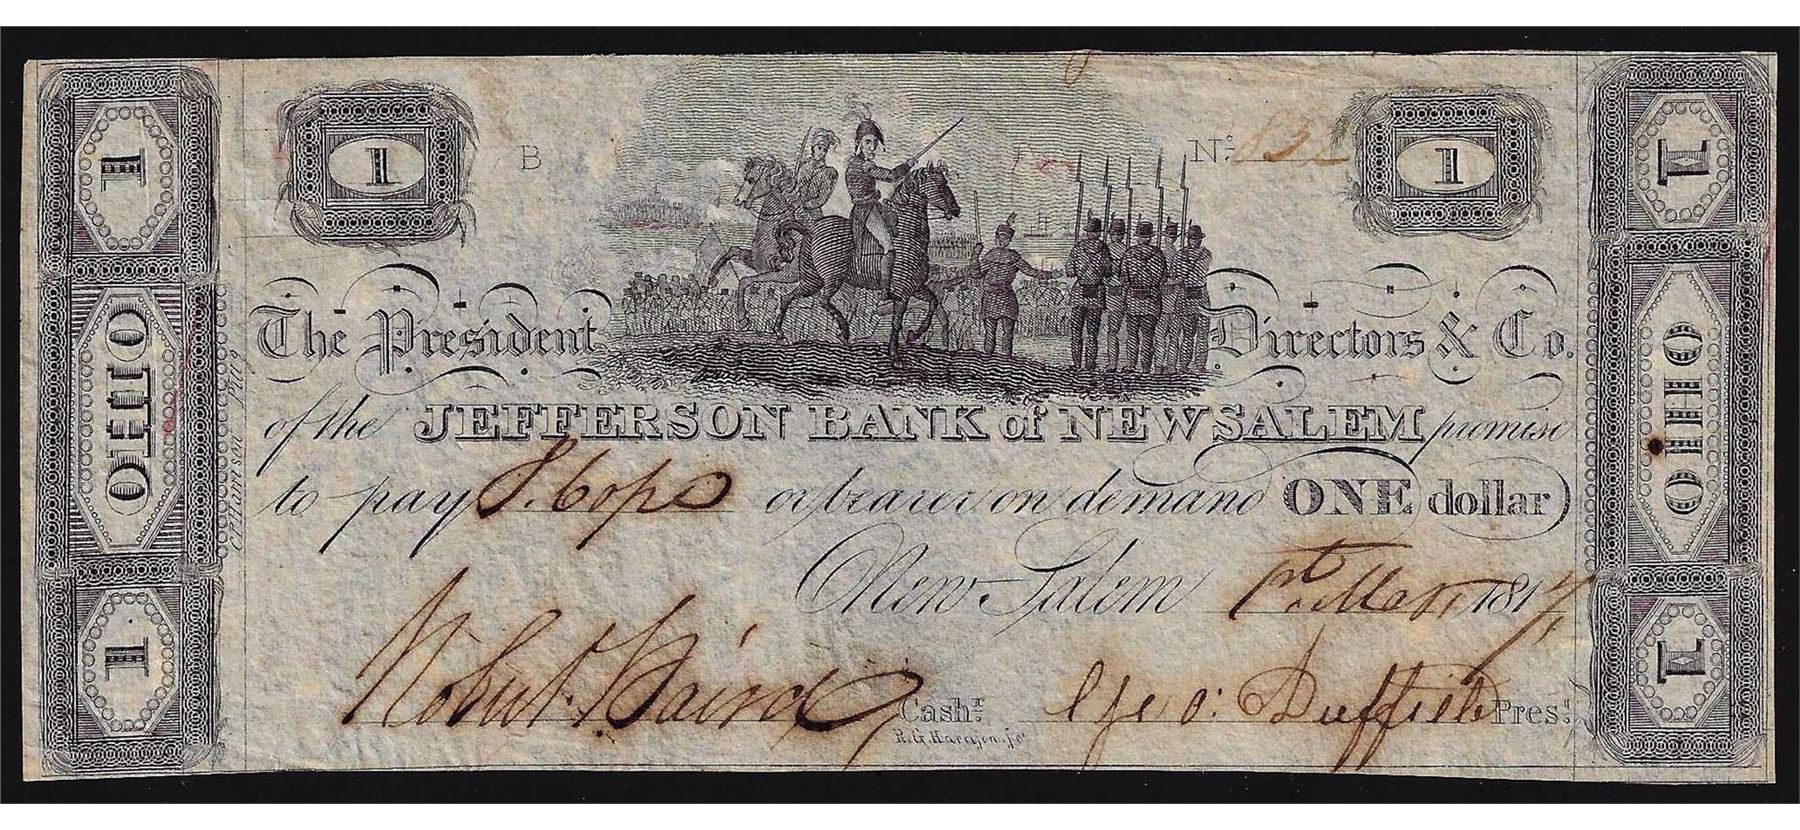 1 1 B Nº. 832 1 1
The President Directors & Co.
of the JEFFERSON BANK of NEW SALEM promise
to pay or bearer on demand ONE dollar
New Salem 1st Mar 1817
Robert Baird Cashr. Geo: Duffield Prest.
OHIO
1
OHIO
1